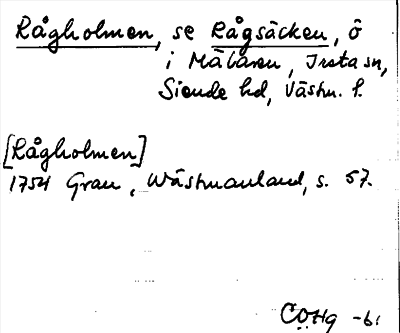 Rågholmen, se Rågsäcken, ö
i Mälaren, Irsta sn,
Siende hd, Västm. l.
[Rågholmen]
1754 Grau, Wästmanland, s. 57.
COHg -61